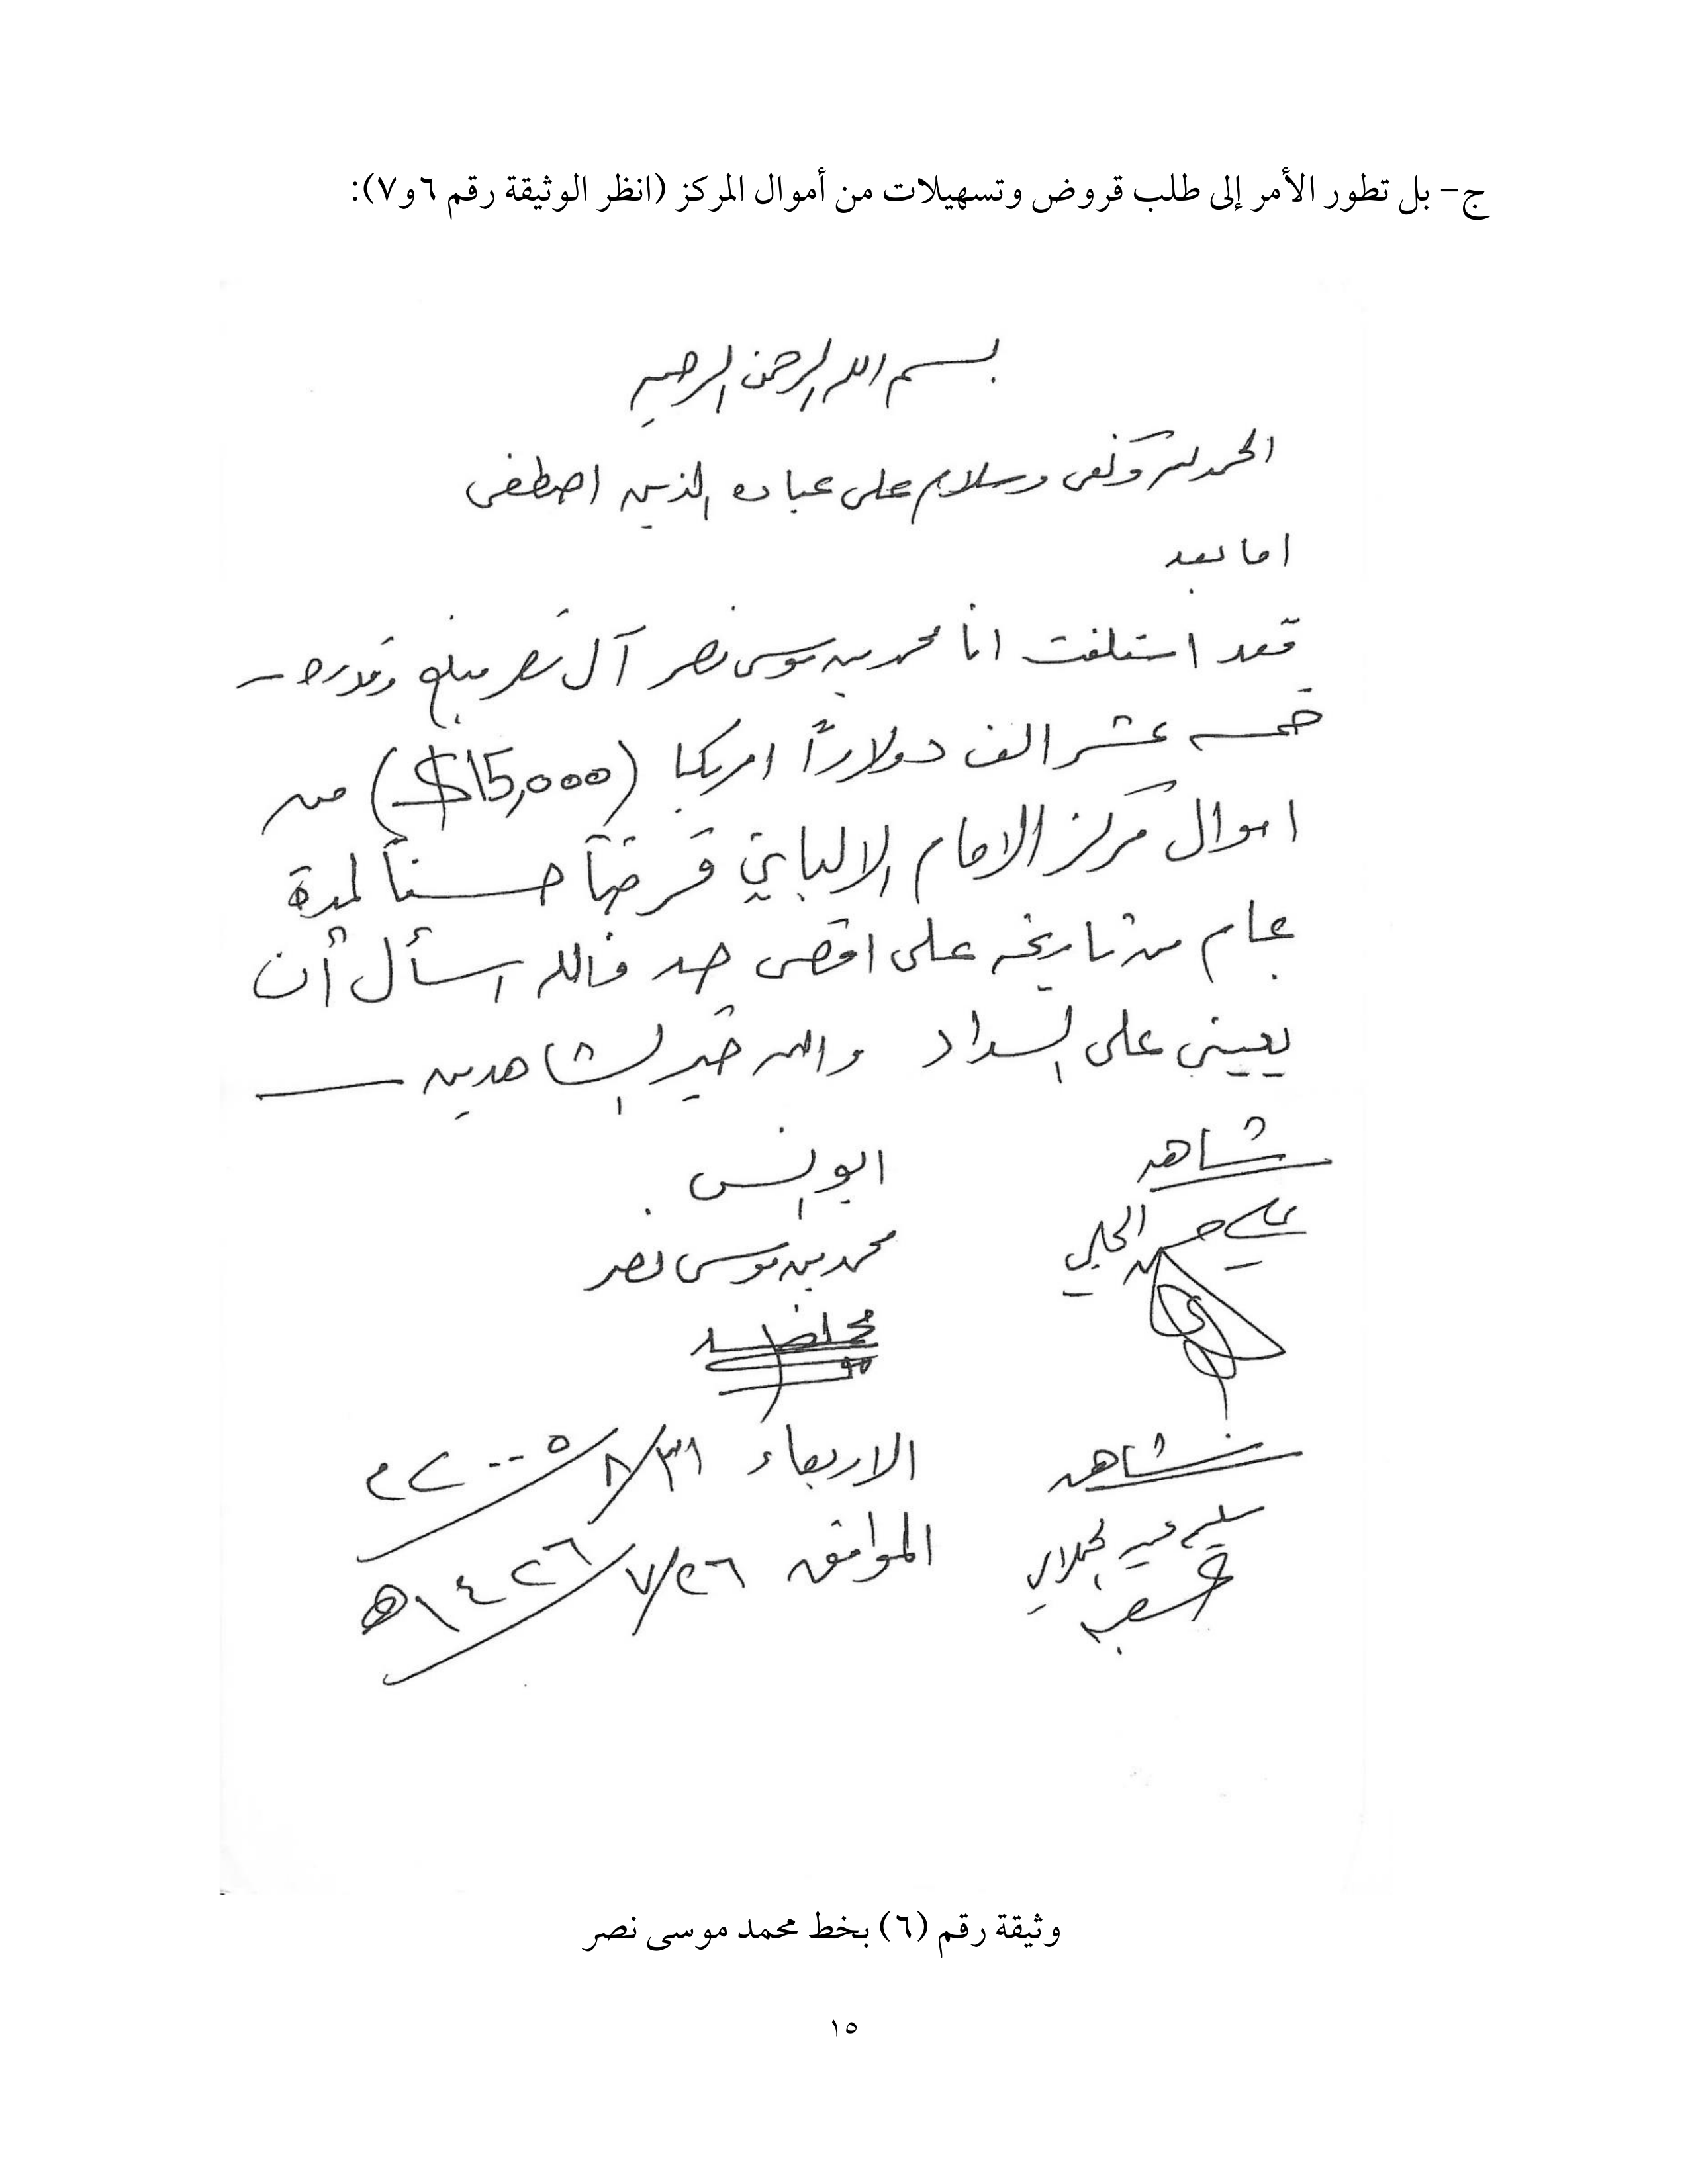 ج- بل تطور الأمر إلى طلب قروض وتسهيلات من أموال المركز (انظر الوثيقة رقم ٦ و٧):
بسم الله الرحمن الرحيم
الحمد لله وكفى وسلام على عباده الذين اصطفى
اما بعد
فقد استلفت انا محمد بن موسى نصر آل نصر مبلغ وقدره
خمسه عشر الف دولاراً امريكيا ($15,000) من
اموال مركز الامام الالباني قرضاً حسناً لمدة
عام من تاريخه على اقصى حد فالله اسأل أن
يعينني على السداد والله خير الشاهدين
شاهد
ابو انس
علي حسن الحلبي
محمد بن موسى نصر
شاهد
الاربعاء ٣١/٨/٢٠٠٥م
سليم عيد الهلالي
الموافق ٢٦/٧/١٤٢٦ه
وثيقة رقم (٦) بخط محمد موسى نصر
١٥